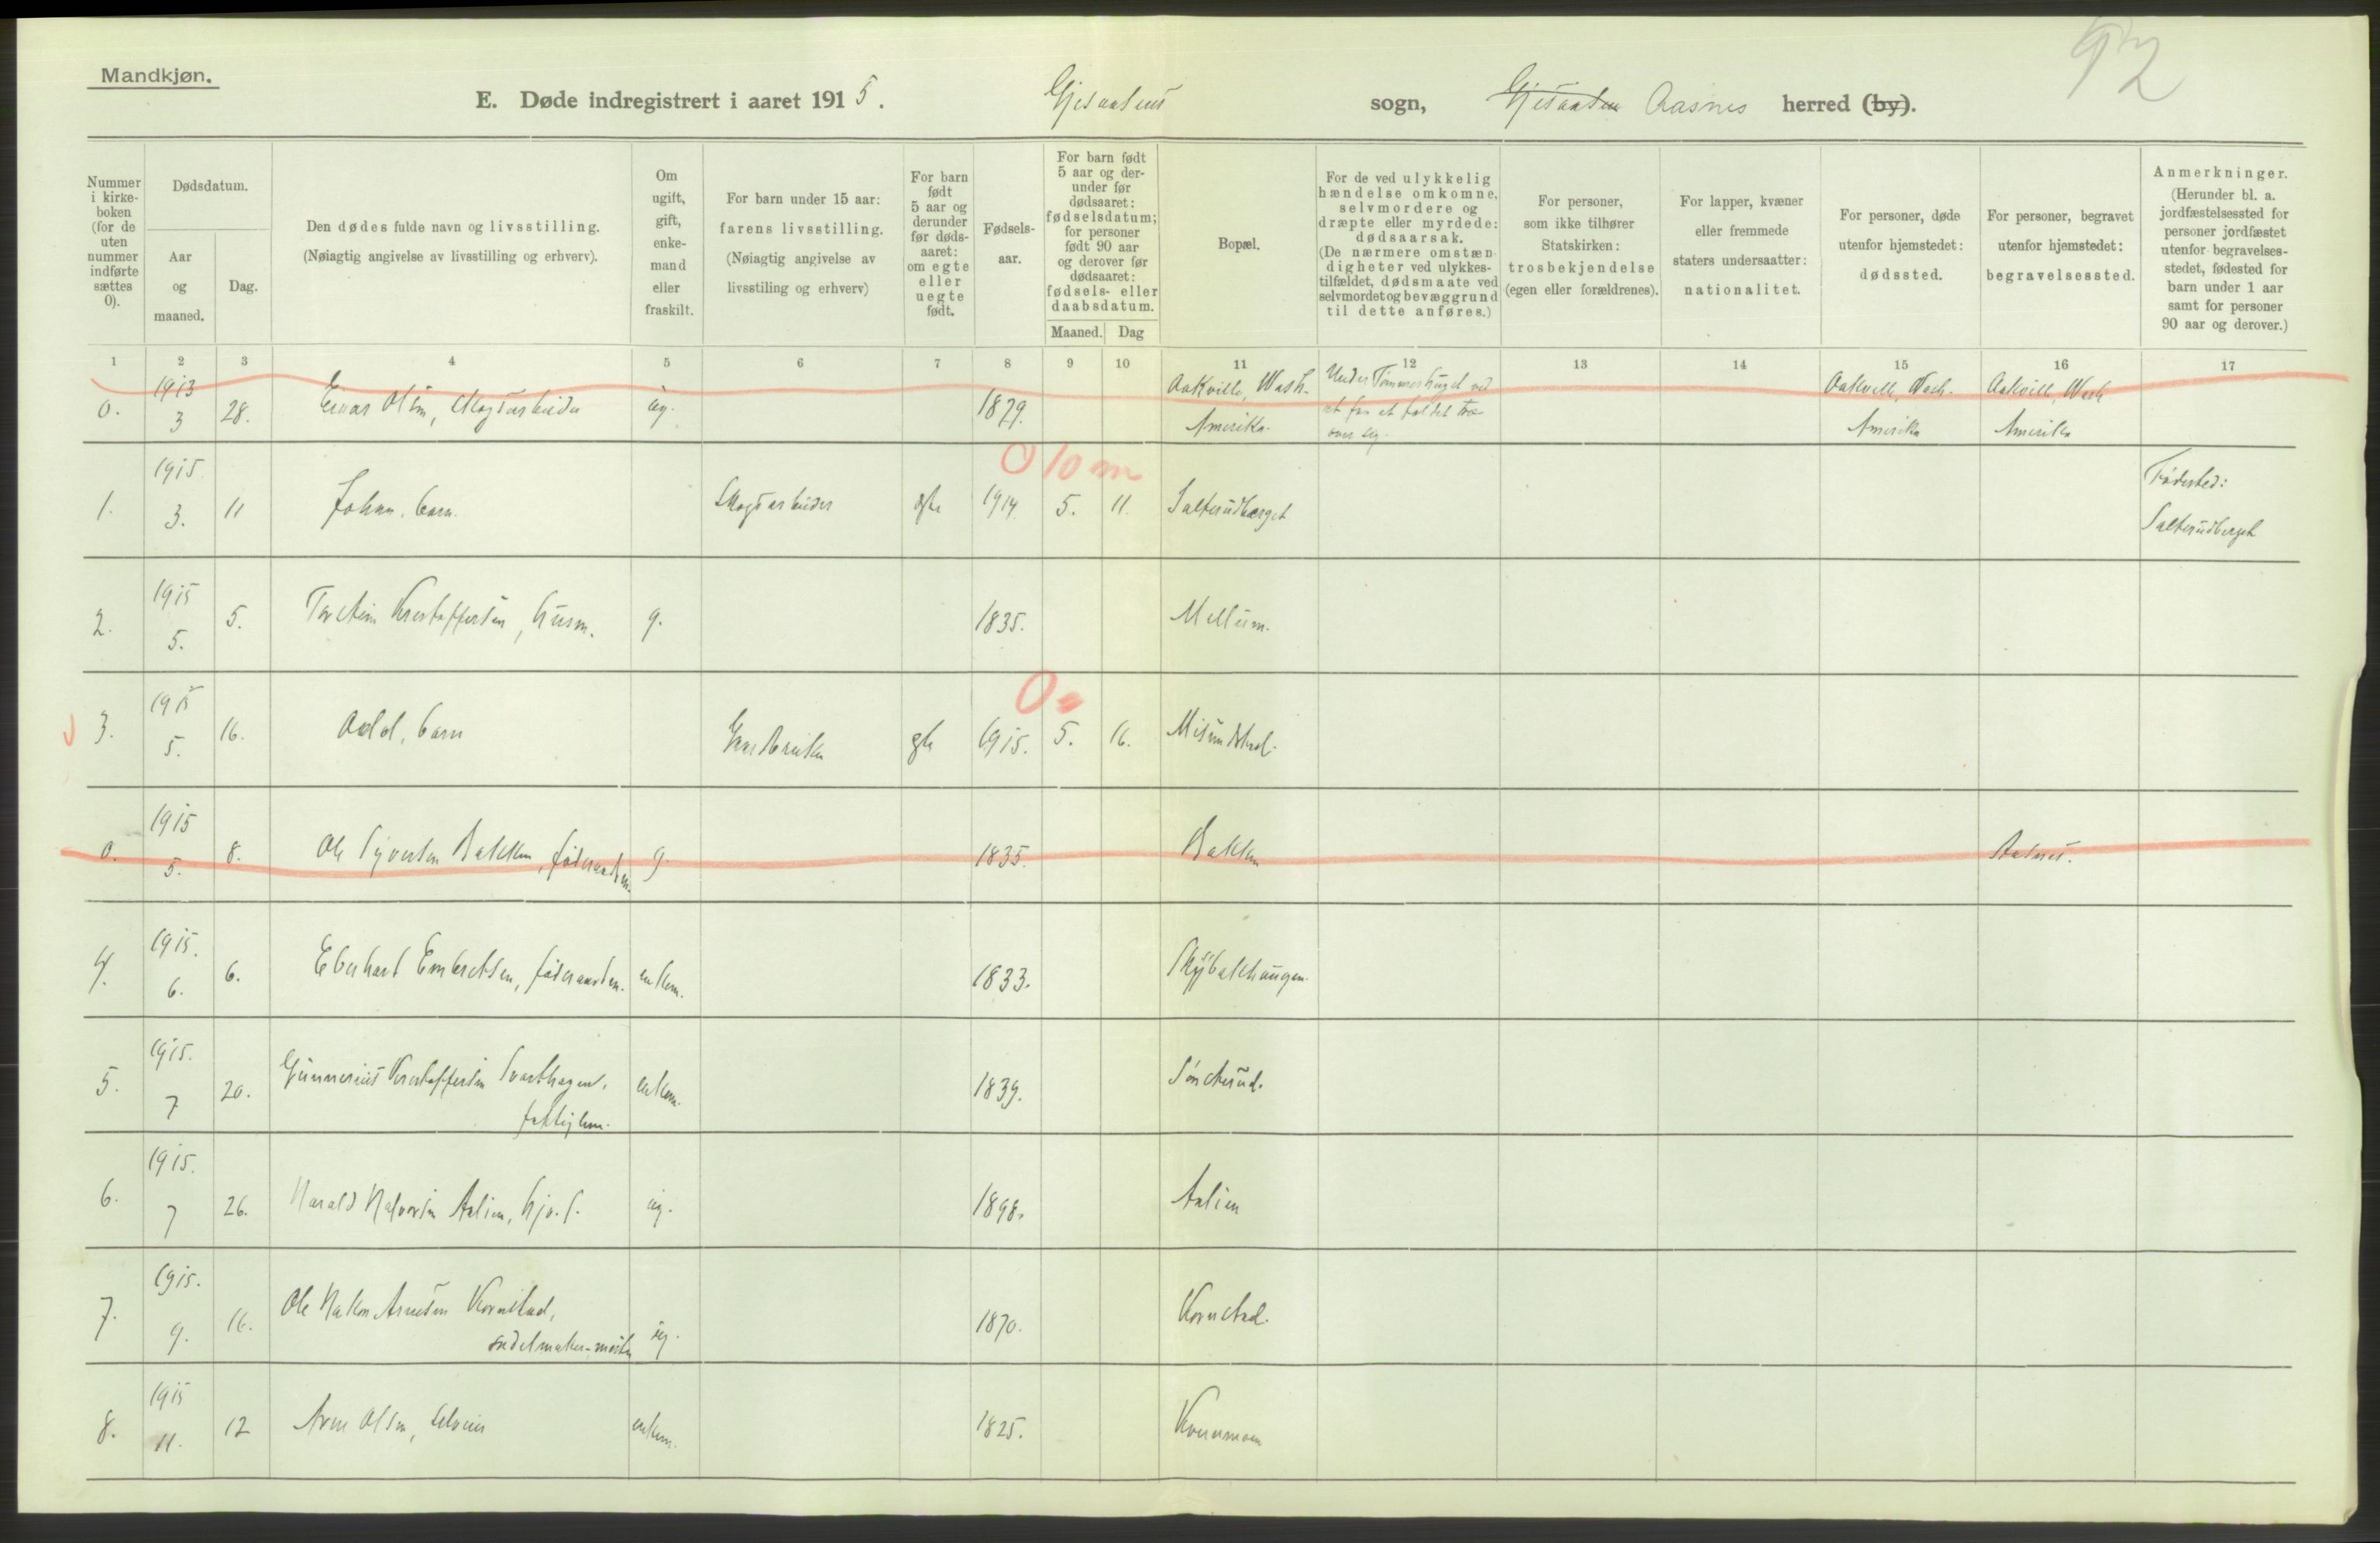 92
Mandkjøn.
E. Døde indregistrert i aaret 1915. Gjesaasens sogn, Gjesaasen Aasnes herred (by).
Nummer i kirkeboken (for de uten nummer indførte sættes 0).
Dødsdatum.
Aar og maaned.
Dag.
Den dødes fulde navn og livsstilling.
(Nøiagtig angivelse av livsstilling og erhverv).
Om ugift, gift, enkemand eller fraskilt.
For barn under 15 aar: farens livsstilling.
(Nøiagtig angivelse av livsstiling og erhverv)
For barn født 5 aar og derunder før dødsaaret: om egte eller uegte født.
Fødselsaar.
For barn født 5 aar og derunder før dødsaaret: fødselsdatum; for personer født 90 aar og derover før dødsaaret: fødsels- eller daabsdatum.
Maaned. Dag
Bopæl.
For de ved ulykkelig hændelse omkomne, selvmordere og dræpte eller myrdede: dødsaarsak.
(De nærmere omstændigheter ved ulykkestilfældet, dødsmaate ved selvmordet og bevæggrund til dette anføres.)
For personer, som ikke tilhører Statskirken: trosbekjendelse (egen eller forældrenes).
For lapper, kvæner eller fremmede staters undersaatter: nationalitet.
For personer, døde utenfor hjemstedet: dødssted.
For personer, begravet utenfor hjemstedet: begravelsessted.
Anmerkninger.
(Herunder bl. a. jordfæstelsessted for personer jordfæstet utenfor begravelsesstedet, fødested for barn under 1 aar samt for personer 90 aar og derover.)
1 2 3 4 5 6 7 8 9 10 11 12 13 14 15 16 17
0. 1913 3 28. Einar Olsen, skogsarbeider ug. 1879. Aakville, Wash. Amerika. Under Tømmerhugst ved at faa et faldet træ over sig. Aakville, Wash. Amerika Aakville, Wash Amerika
0 10 m
1. 1915 3. 11 Johan, barn. Skogsarbeider egte 1914 5. 11. Salterudberget Fødested: Salterudberget
2. 1915 5. 5. Torstein Kristoffersen, husm. g. 1835. Mellem.
0
3. 1915 5. 16. Odd, barn Gaardbruker gte 1915. 5. 16. Misundstad.
0. 1915 5. 8. Ole Syversen Bakken, føderaadsm. g. 1835. Bakken Aasnes.
4. 1915. 6. 6. Eberhard Embretsen, føderaadsm. enkem. 1833. Skybakhaugen.
5. 1915. 7 20. Gunnerius Kristoffersen Svarthagen, fattiglem. enkem. 1839. Sønsterud.
6. 1915. 7 26. Harald Halvorsen Aalien, hjv. s. ug. 1898. Aalien
7. 1915. 9. 16. Ole Hakon Arnesen Kornstad, sadelmaker-mester ug. 1870. Kornstad.
8. 1915 11. 12 Arne Olsen, selveier enkem. 1825. Kvernmoen